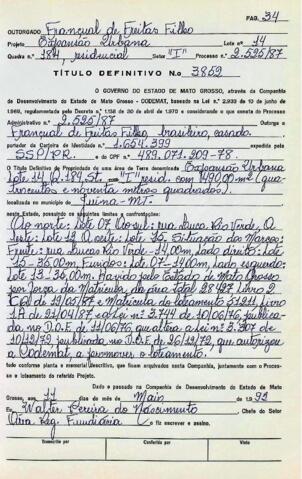 PAG. 34
OUTORGADO Françual de Freitas Filho
Projeto Expansão Urbana Lote n.º 14
Quadra n.º 184, residencial Setor "I" Processo n.º 2.525/87
TÍTULO DEFINITIVO N.o 3859
O GOVERNO DO ESTADO DE MATO GROSSO, através da Companhia
de Desenvolvimento do Estado de Mato Grosso - CODEMAT, baseado na Lei n.º 2.933 de 10 de junho
de 1969, regulamentada pelo Decreto n.º 1.138 de 30 de abril de 1970 e considerando o que consta do Processo
Administrativo n.º 2.525/87 Outorga a
Françual de Freitas Filho, brasileiro, casado.
portador da Carteira de Identidade n.º 1.654.399 expedida pela
SSP/PR. e do CPF n.º 489.071.209-78.
O Título Definitivo de Propriedade de uma área de Terra denominada Expansão Urbana
Lote 14 Q. 184, St. "I" resid. com 490,00 m² (quatrocentos e noventa metros quadrados).
localizada no município de Juína-MT.
neste Estado, possuindo os seguintes limites e confrontações:
Ao norte: Lote 07 Ao sul: rua Lucas Rio Verde, A
leste: Lote 12 A oeste: Lote 15. Situação dos Marcos:
Frente: rua Lucas Rio Verde-14,00m, lado direito: Lote
15-35,00m. Fundos: Lote 07-14,00m, lado esquerdo:
Lote 13-35,00m. Havido pelo Estado de Mato Grosso
por força da Matrícula da área total 28427 Livro 2
de 12/05/87 e Matrícula do loteamento Livro
1A de 21/04/87 Lei n.º 3.744 de 10/06/76, publicada
no D.O.E. de 11/06/76, que altera a lei n.º 3.307 de
10/12/72, publicada no D.O.E. de 26/12/72, que autorizou
a Codemat, a promover o loteamento.
tudo conforme planta e memorial descritivo, que ficam arquivados nesta Companhia, juntamente com o Processo e loteamento do referido Projeto.
Dado e passado na Companhia de Desenvolvimento do Estado de Mato
Grosso, aos 11 dias do mês de Maio de 1.992
Eu Walter Pereira do Nascimento Chefe do Setor
Reg. Fundiária o fiz escrever e assino.
Escrito por Conferido por Visto